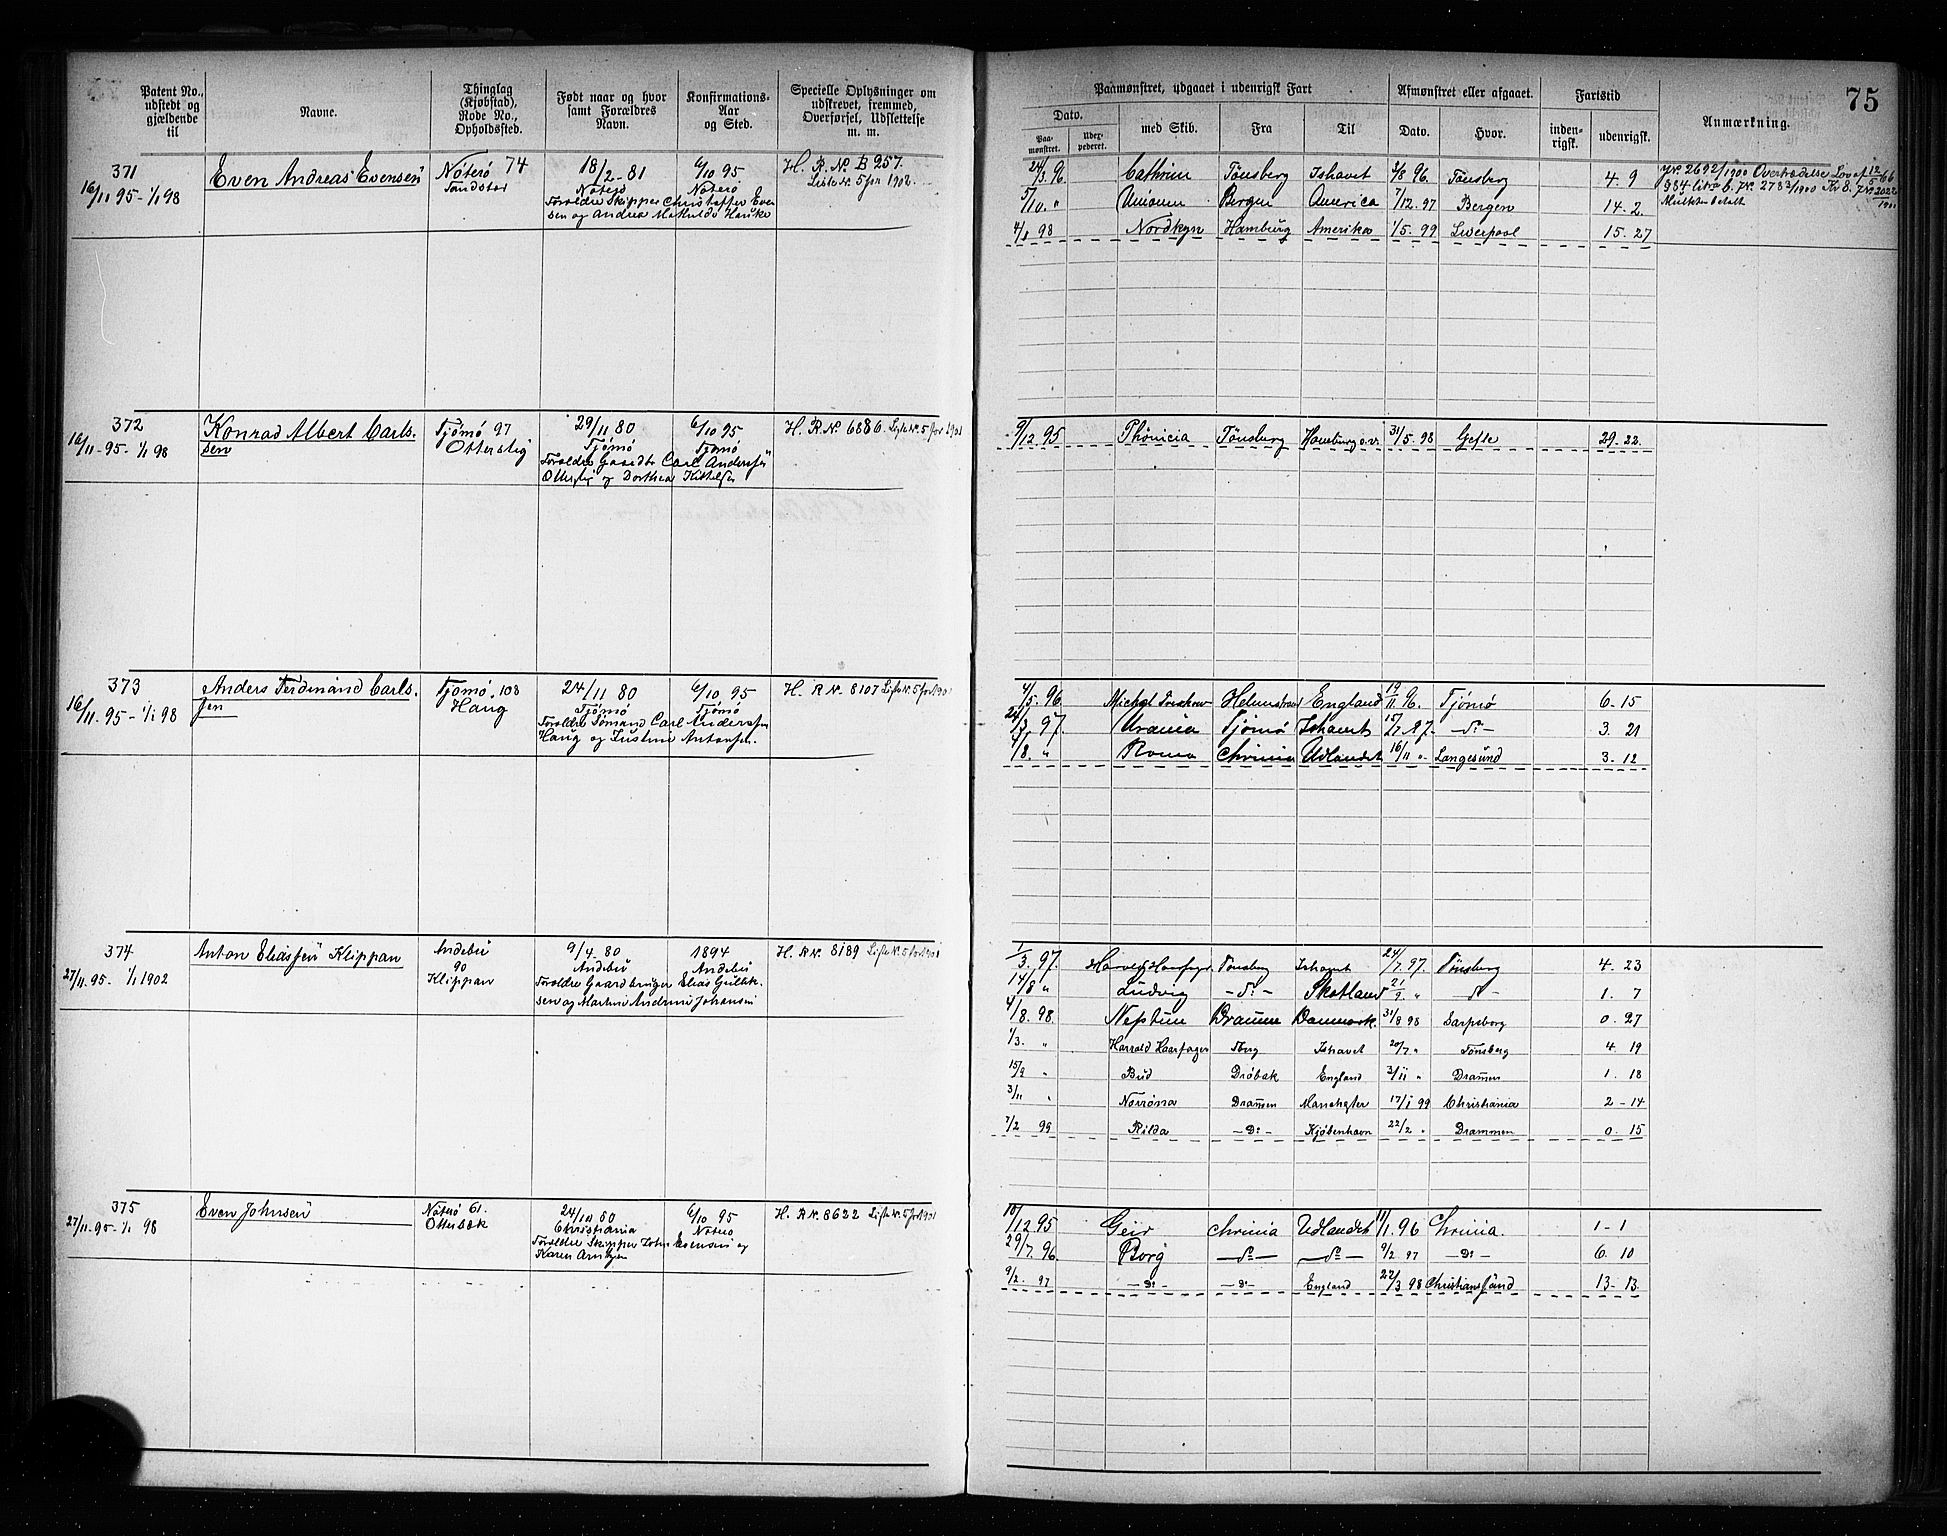 75
Patent No., udstedt og gjældende til
Navne.
Thinglag (Kjøbstad), Rode No., Opholdssted.
Født naar og hvor samt Forældres Navn.
Konfirmations-Aar og Sted.
Specielle Oplysninger om udskrevet, fremmed, Overførsel, Udslettelse m. m.
Paamønstret, udgaaet i udenrigsk Fart
Afmønstret eller afgaaet.
Fartstid
Anmærkning.
Dato.
med Skib.
Fra
Til
Dato.
Hvor.
inden-rigsk.
udenrigsk.
Paa-mønstret.
371
16/11 95 - 1/1 98
Even Andreas Evensen
Nøterø 74
18/2 - 81
Nøterø
Forældre Skipper Christoffer Evensen og Andrea Mathilde
6/10 95
Nøterø
H. R. No. B 257.
Liste No. 5 for 1902.
24/3 96. Cathrine Tønsberg Ishavet 3/8 96. Tønsberg 4. 9
5/10. " Unionen Bergen America 7/12. 97 Bergen 14. 2.
4/1 98 Nordkyn Hamburg Amerika 1/5. 99 Liverpool 15. 27
J.No. 2692/1900 Overtrædelse Lov af 12/5 66
§ 34 litra b. J.No. 2783/1900 Kr 8. J.No 2022/1901
Mulkten betalt
372
16/11 - 95 - 1/1 98
Konrad Albert Carls.
sen
Tjømø 97
Otterstig
29/11 80
Tjømø
6/10 95
Tjømø
Forældre Gaardbr Carl Anderssen
Otterstig og Dorthea Kittelsen
H. R. No 6886. Liste No. 5 for 1901
9/12. 95 Phønicia Tønsberg Hamburg o.v. 31/5. 98 Gefle 29. 22.
373
16/11. 95 - 1/1 98
Anders Ferdinand Carls.
sen
Tjømø. 108
Haug
24/11 80
Tjømø
6/10 95
Tjømø
Forældre Sømand Carl Anderssen
Haug og Justine Antonsen.
H. R No. 8107 Liste No. 5 for 1901
4/5. 96 England 19/11 96. Tjømø 6. 15
24/3 97. Urania Tjømø Ishavet 15/7. 97. - do - 3. 21
4/8. " Roma Chrinia Udlandet 16/11 " Langesund 3. 12
374
27/11. 95. 1/1 1902
Anton Eliassen Klippan
Andebu
90
Klippan
9/4. 80
Andebu
1894
Andebu
Forældre Gaardbruger Elias Gullik-
sen og Martine Andrine Johansen
H. R No. 8189 Liste No. 5 for 1901
1/3. 97. Tønsberg Ishavet 24/7. 97. Tønsberg 4. 23
14/8 " Ludvig - do - Skotland 21/9. " do - 1. 7
4/8. 98. Neptun Drammen Danmark. 31/8 98 Sarpsborg 0. 27
1/3. " Harrald Haarfager Tberg Ishavet 20/7 " Tønsberg 4. 19
15/9 " Bud Drøbak England 3/11 " Drammen 1. 18
3/11 " Norrøna Drammen Manchester 17/1 99 Christiania 2 - 14
7/2 99 Rilda - Do - Kjøbenhavn 22/2 " Drammen 0. 15
375
27/11. 95 - 1/1 98
Even Johnsen
Nøterø 61.
Otterbæk
24/10 80
Christiania
6/10 95
Nøterø
Forældre Skipper John Evensen og
Karen
H. R No. 8622 Liste No. 5 for 1901
10/12. 95 Geir Chrinia Udlandet 11/1. 96 Chrinia. 1 - 1
29/7. 96 Borg - do - - do - 9/2. 97 - Do - 6. 10
9/2. 97 - Do - - do - England 22/3 98 Christianssand 13 - 13